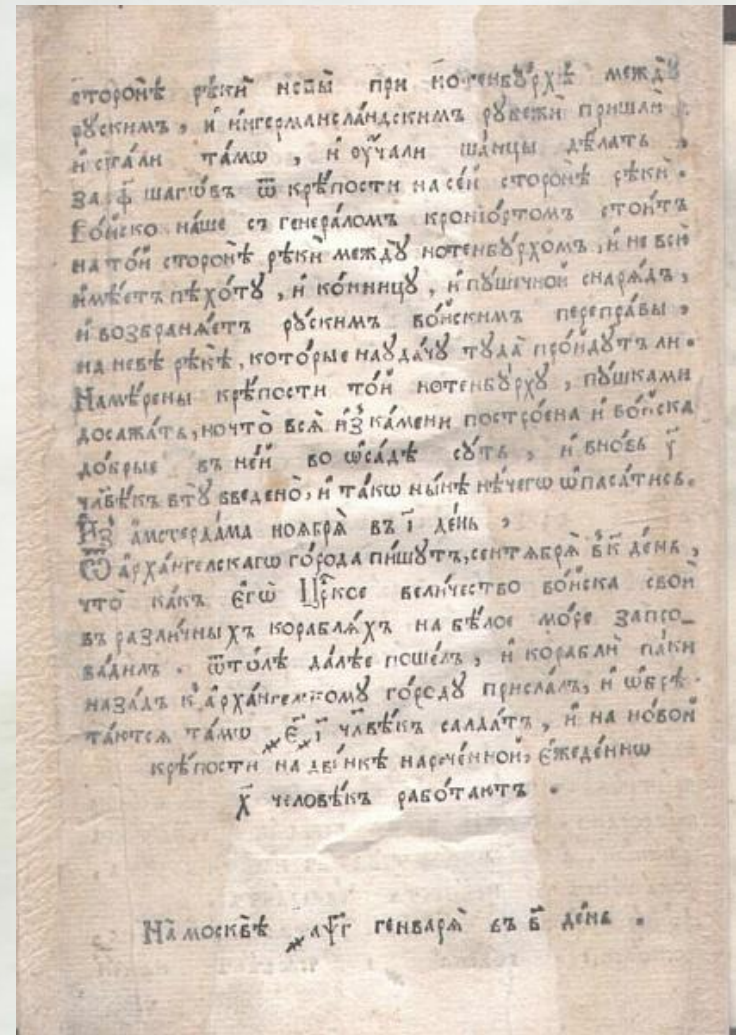 сторонѣ рѣкѝ невы̀ при нотенбꙋ́рхѣ междꙋ̀
рꙋскимъ , и҆ и҆нгерманела́ндскимъ рꙋбежѝ пришлѝ
и҆ ста́ли та́мѡ , и҆ ᲂу҆ча́ли ша́нцы дѣ́лать ,
за ф҃ шагѡ́въ ѿ крѣ́пости на се́й сторонѣ̀ рѣкѝ .
Во́йско на́ше съ генера́ломъ кроніо́ртомъ стои́тъ
на то́й сторонѣ̀ рѣкѝ междꙋ̀ нотенбꙋ́рхомъ , и҆ не всю̀
и҆мѣ́етъ пѣхо́тꙋ , и҆ ко́нницꙋ , и҆ пꙋ́шечной снарѧ́дъ ,
и҆ возбранѧ́етъ рꙋ́скимъ во́йскимъ перепра́вы ,
на невѣ̀ рѣкѣ̀ , которые наꙋда́чꙋ тꙋда̀ про́йдꙋтъ ли .
Намѣ́рены крѣ́пости то́й нотенбꙋ́рхꙋ , пꙋ́шками
досажа́ть , но что̀ всѧ̀ и҆з̾ ка́мени постро́ена и҆ во́йска
до́брые въ не́й во ѡ҆са́дѣ сꙋ́ть , и҆ вно́вь у҃
чл҃вѣ́къ в̾ тꙋ̀ введено̀ , и҆ та́кѡ ны́нѣ нѣ́чегѡ ѡ҆паса́тись .
И҆з̾ а҆мстерда́ма ноѧбрѧ̀ въ і҃ де́нь ,
Ѿ а҆рха́нгелскагѡ го́рода пи́шꙋтъ , сентѧбрѧ̀ в̾ к҃ де́нь ,
что̀ ка́къ є҆гѡ̀ Цр҃кое вели́чество во́йска своѝ
въ разли́чныхъ кораблѧ́хъ на бѣ́лое мо́ре запро-
ва́дилъ . ѿто́лѣ да́лѣе поше́лъ , и҆ кораблѝ па́ки
наза́дъ к̾ а҆рха́нгелскомꙋ го́родꙋ присла́лъ , и҆ ѡ҆брѣ-
та́ютсѧ та́мѡ ҂є҃і҃ чл҃вѣ́къ салда́тъ , и҆ на но́вой
крѣ́пости на дви́нкѣ нарече́нной , є҆жеде́ннѡ
х҃ человѣ́къ рабо́таютъ .
На москвѣ̀ ҂аѱ҃г генварѧ̀ въ в҃ де́нь .